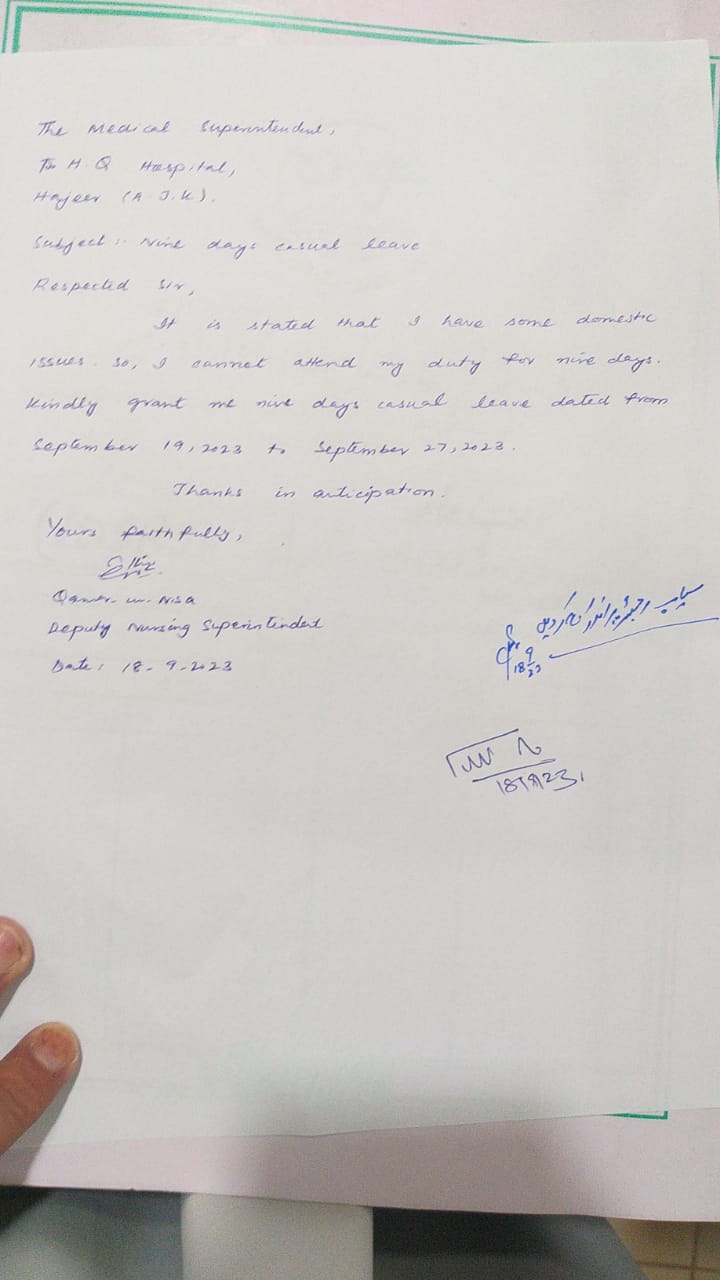 The Medical Superintendent,
T H Q Hospital,
Hajeer (A.J.K).
Subject:- Nine days casual leave
Respected Sir,
It is stated that I have some domestic
issues. So, I cannot attend my duty for nine days.
Kindly grant me nine days casual leave dated from
September 19, 2023 to September 27, 2023.
Thanks in anticipation.
Yours faithfully,
Qamer-un-Nisa
Deputy Nursing Superintendent
Date: 18-9-2023
18/9/23
18/9/23